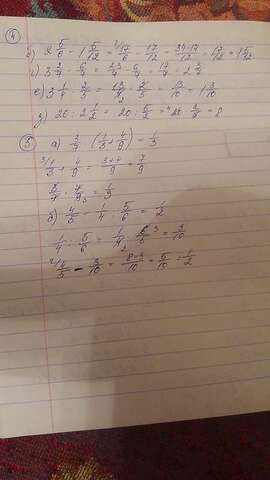 4
2 5/6 - 1 5/12 = 17/6 - 17/12 = 34-17/12 = 17/12 = 1 5/12
г) 3 2/7 - 6/7 = 23/7 - 6/7 = 17/7 = 2 3/7
е) 3 1/4 · 2/5 = 13/4 · 2/5 = 13/10 = 1 3/10
20 : 2 1/2 = 20 : 5/2 = 20 · 2/5 = 8
5 а) 3/7 · (1/3 + 4/9) = 1/3
1/3 + 4/9 = 3+4/9 = 7/9
3/7 · 7/9 = 1/3
4/5 - 1/4 : 5/6 = 1/2
1/4 : 5/6 = 1/4 · 6/5 = 3/10
4/5 - 3/10 = 8-3/10 = 5/10 = 1/2